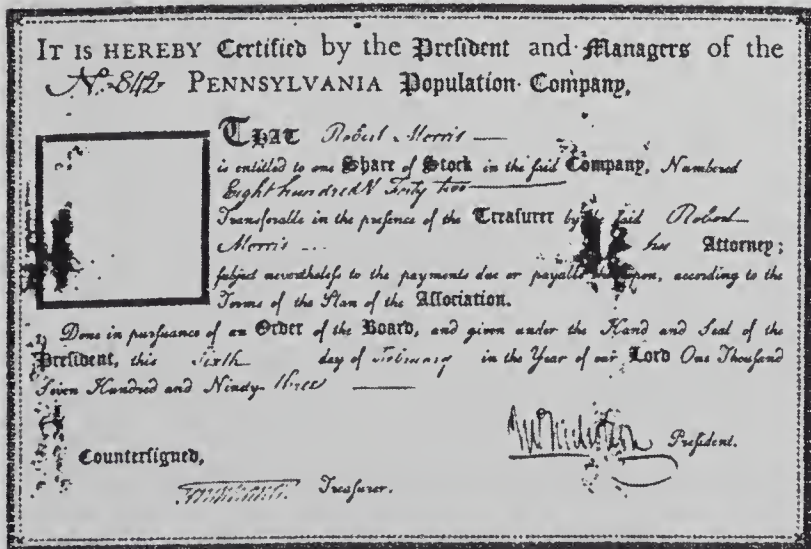 IT IS HEREBY Certified by the Preſident and Managers of the
No. 842 PENNSYLVANIA Population Company,
THAT Robert Morris
is entitled to one Share of Stock in the ſaid Company, Numbered
Eight hundred & Forty two
Transferable in the preſence of the Treaſurer by the ſaid Robert
Morris his Attorney;
ſubject nevertheleſs to the payments due or payable thereupon, according to the
Terms of the Plan of the Aſſociation.
Done in purſuance of an Order of the Board, and given under the Hand and Seal of the
Preſident, this Sixth day of February in the Year of our Lord One Thouſand
Seven Hundred and Ninety three
Counterſigned,
Preſident.
Treaſurer.